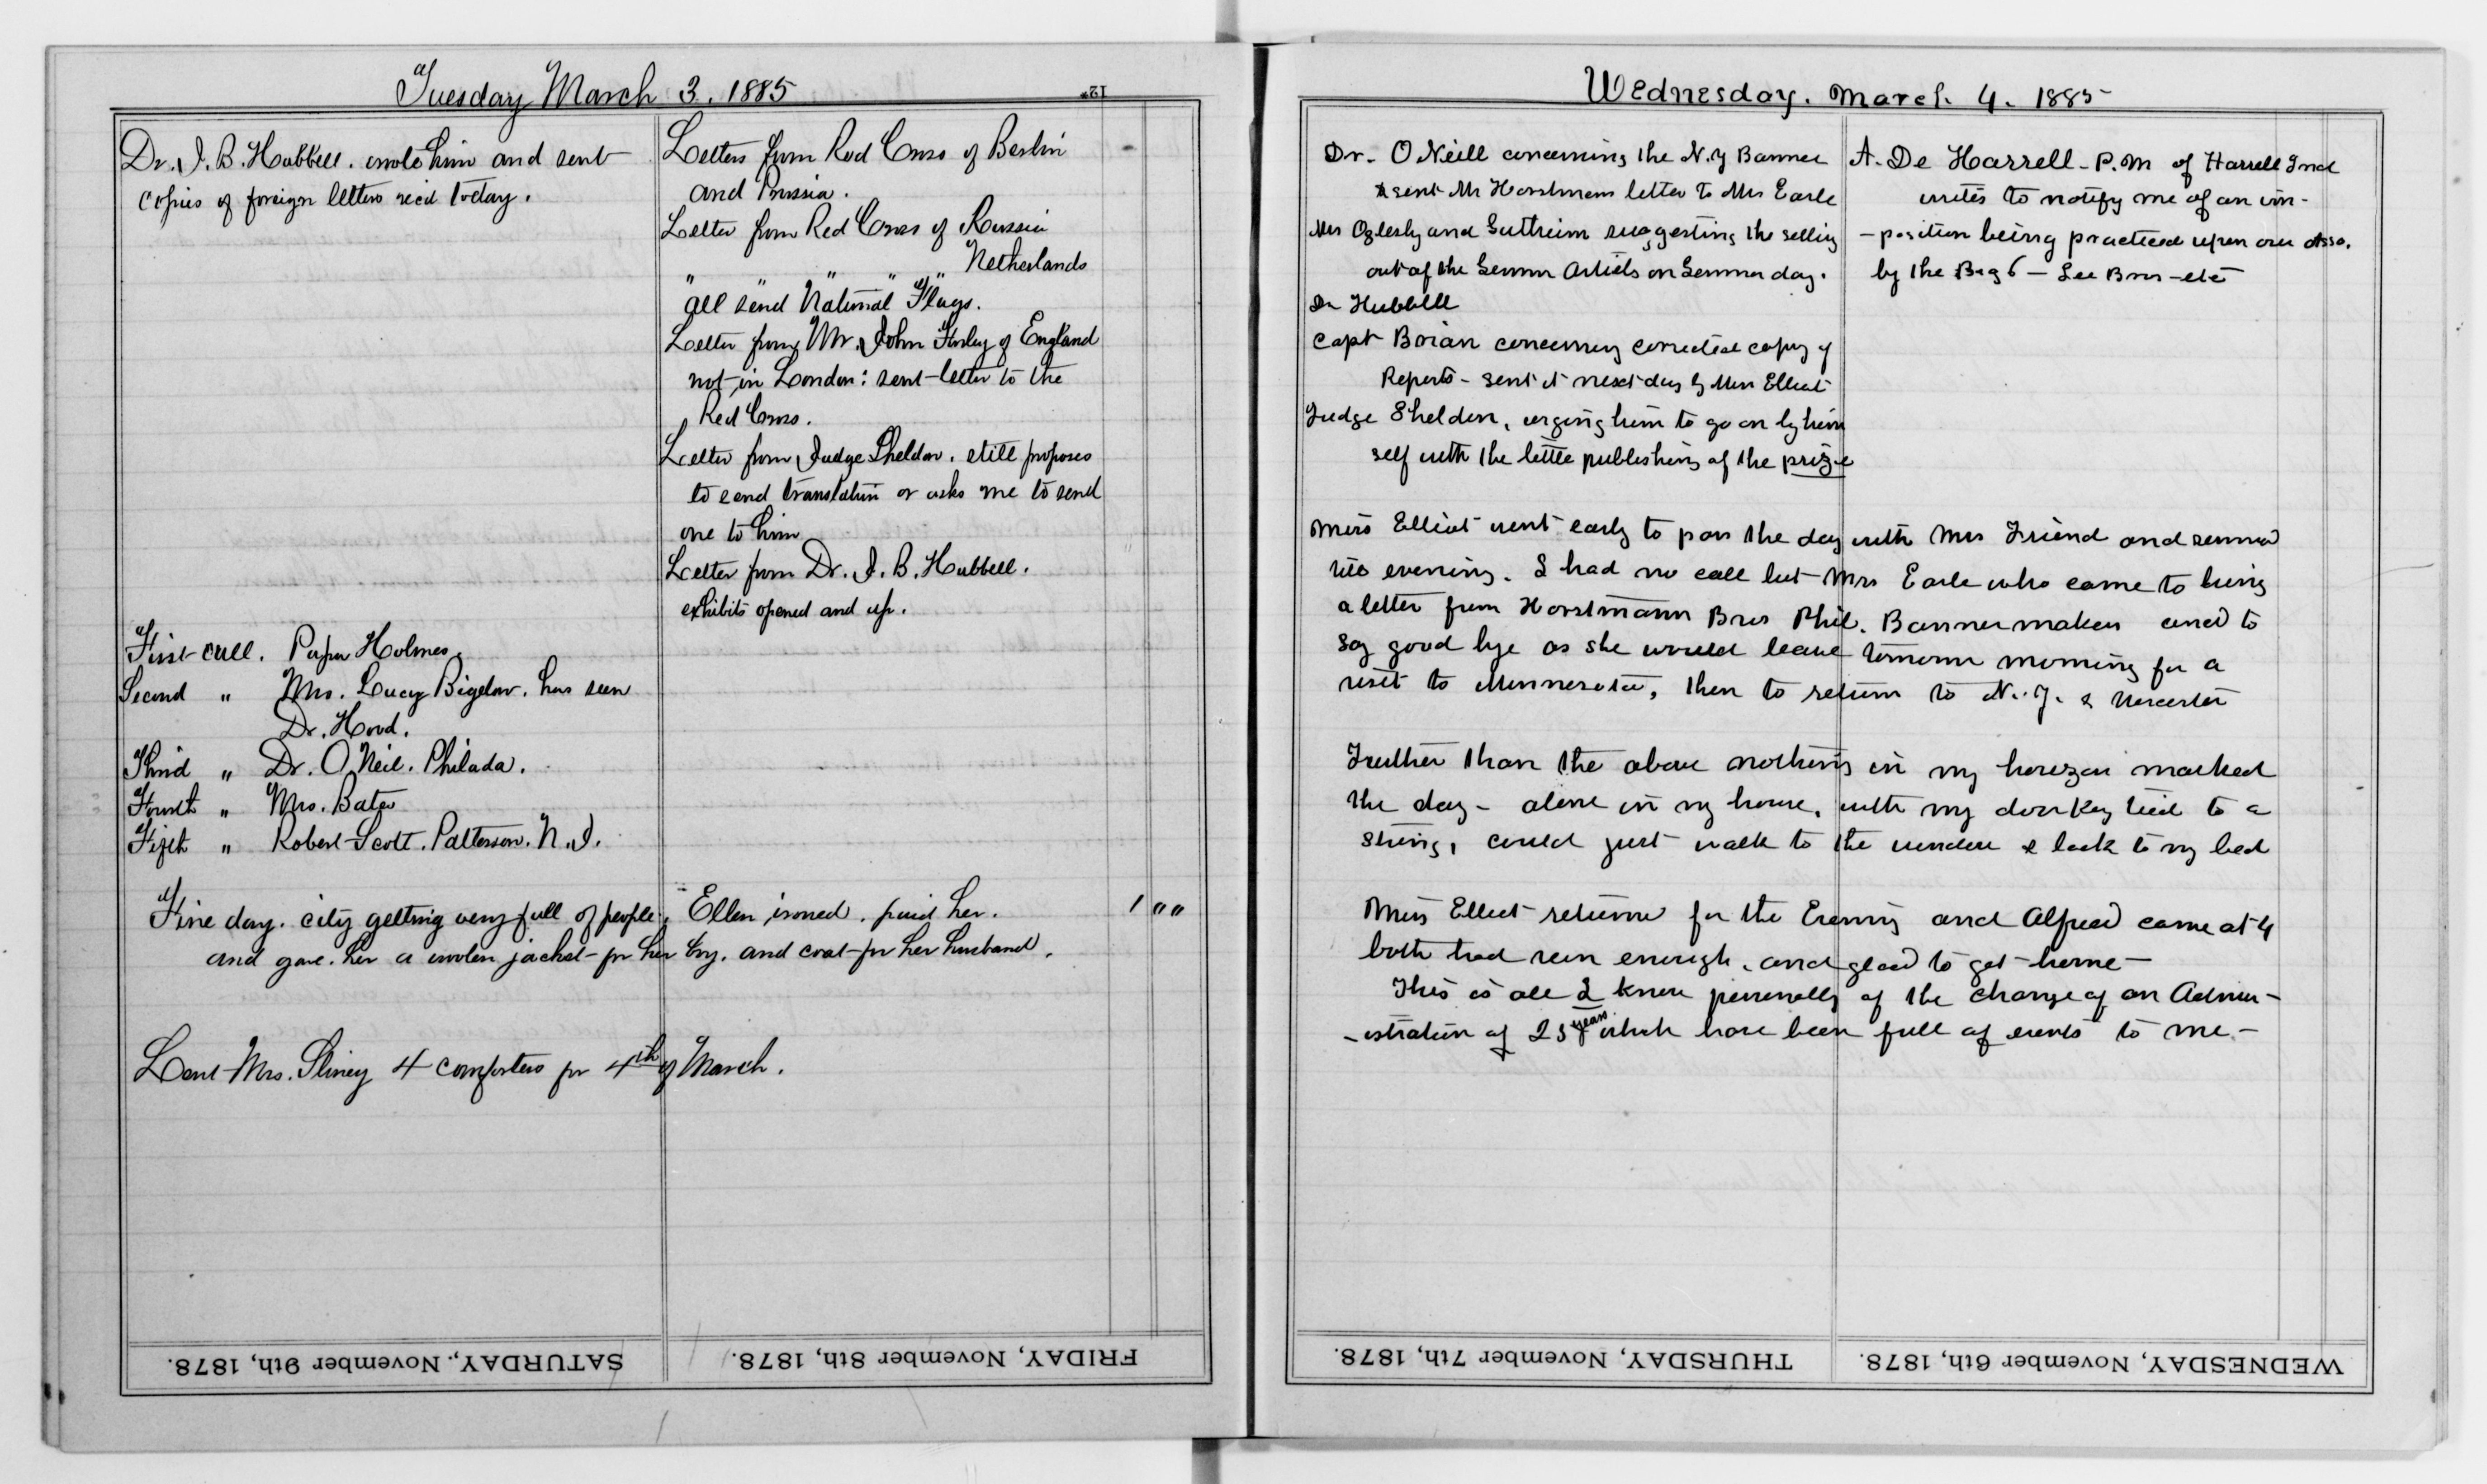 Tuesday March 3. 1885
12*
Dr. J. B. Hubbell. wrote him and sent
copies of foreign letters rec'd today.
Letters from Red Cross of Berlin
and Prussia.
Letter from Red Cross of Russia
" " " " " Netherlands
all send National Flags.
Letter from Mr. John Furley of England
not in London: sent letter to the
Red Cross.
Letter from Judge Sheldon. still proposes
to send translation or asks me to send
one to him
Letter from Dr. J. B. Hubbell.
exhibits opened and up.
First call. Papa Holmes.
Second " Mrs. Lucy Bigelow. has seen
Dr. Hood.
Third " Dr. O Neil. Philada.
Fourth " Mrs. Bates
Fifth " Robert Scott. Patterson. N. J.
Fine day. city getting very full of people. Ellen ironed. paid her. 1 " "
and gave her a woolen jacket for her boy. and coat for her husband.
Lent Mrs. Sliney 4 comforters for 4th of March.
SATURDAY, November 9th, 1878.
FRIDAY, November 8th, 1878.
Wednesday. March. 4. 1885
Dr. O Neill concerning the N.Y Banner
sent Mr Horstmans letter to Mrs Earle
Mrs Oglesby and Guthrim suggesting the selling
out of the German Articles on German day.
Dr Hubbell
Capt Brian concerning corrected copy of
Reports - sent it next day by Miss Elliot
Judge Sheldon, urging him to go on by him
self with the little publishing of the prize
A. De Harrell - P.M of Harrell Ind
writes to notify me of an im-
-position being practiced upon our Asso.
by the Big 6 - Lee Bros - etc
Miss Elliot went early to pass the day with Mrs Friend and
evening. I had no call but Mrs Earle who came to bring
a letter from Horstmann Bros Phil. Banner makers and to
say good bye as she would leave tomorrow morning for a
visit to Minnesota, then to return to N. J. & Worcester
Further than the above nothing in my horizon marked
the day - alone in my house, with my door key tied to a
string, could just walk to the window & back to my bed
Miss Elliot returned for the Evening and Alfred came at 4
both had seen enough. and glad to get home -
This is all I know personally of the change of an Admin-
-istration of 25 years which have been full of events to me. -
THURSDAY, November 7th, 1878.
WEDNESDAY, November 6th, 1878.